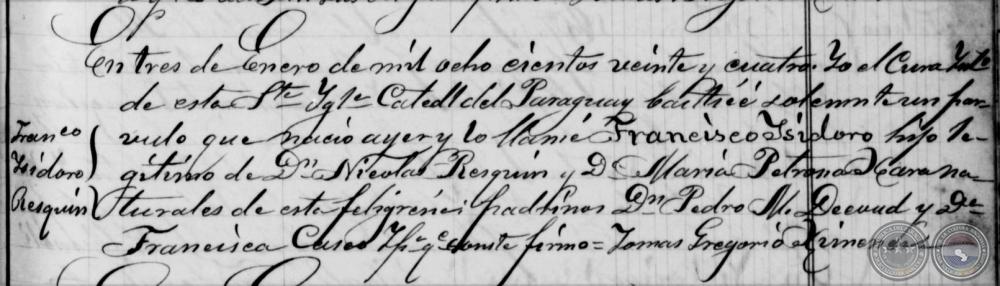 En tres de Enero de mil ocho cientos veinte y cuatro. Yo el Cura
de esta Sta Ygla Catedl del Paraguay bautizé solemnte un par-
vulo que nacio ayer y lo llamé Francisco Isidoro hijo le-
gitimo de Dn Nicolas Resquin y Da Maria Petrona na-
turales de esta feligresia padrinos Dn Pedro M. Decoud y Da
Francisca qe conste firmo = Tomas Gregorio
Franco
Isidoro
Resquin